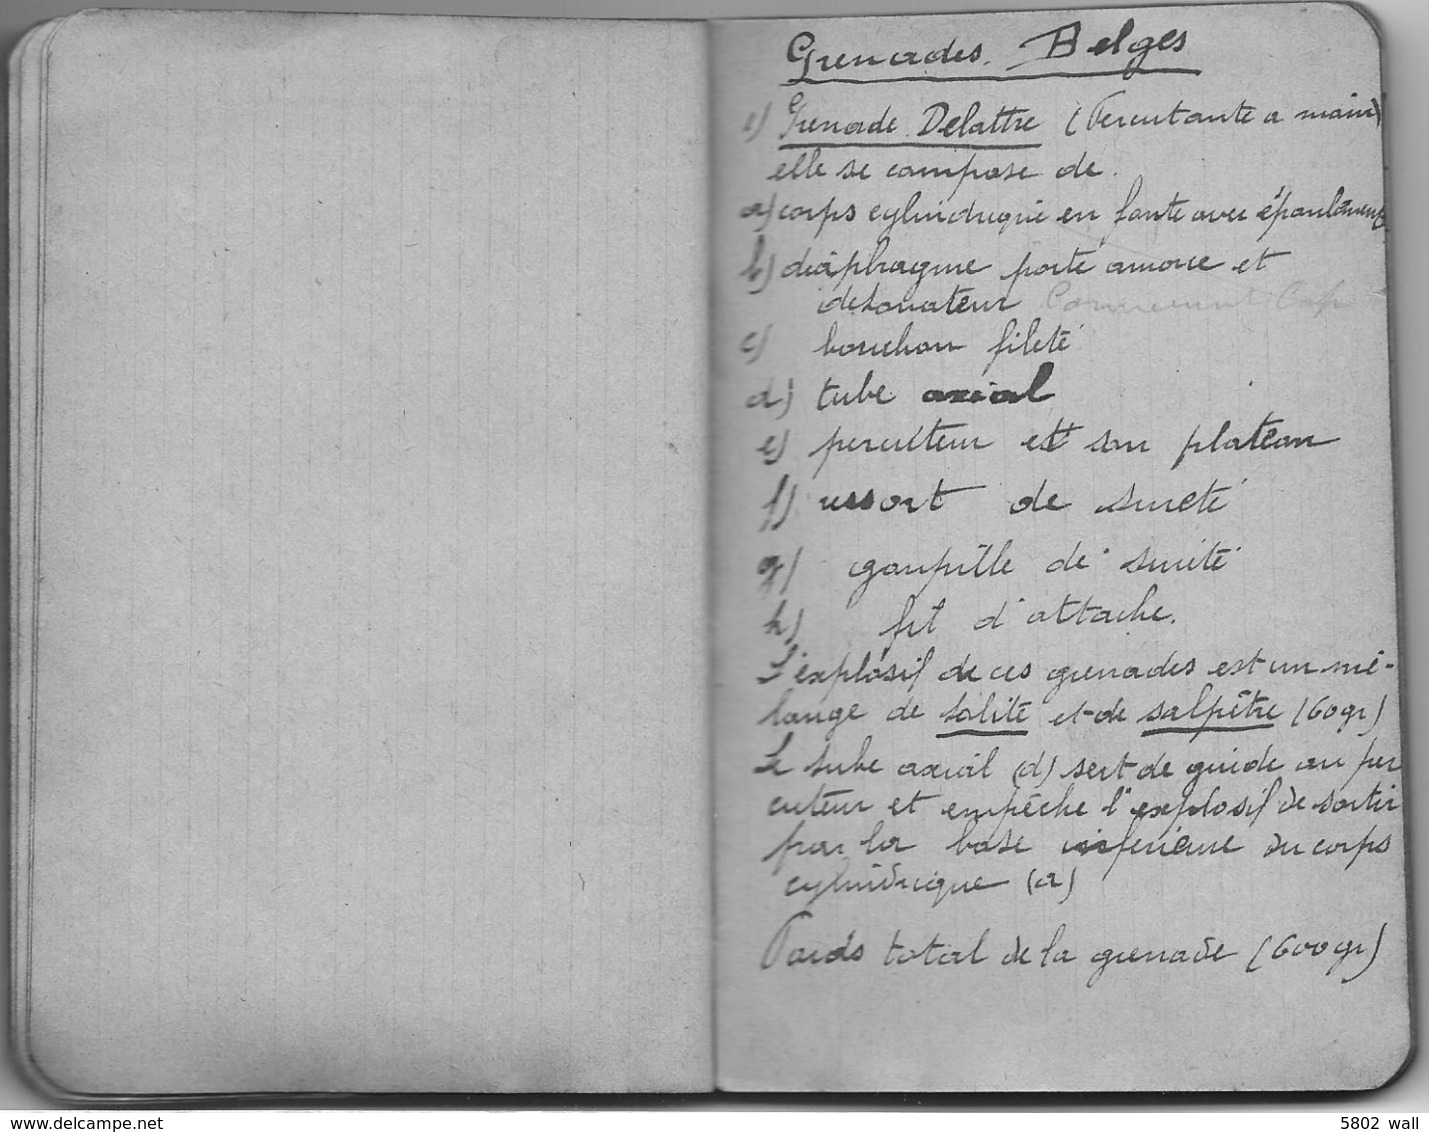 Grenades Belges
1) Grenade Delattre (Percutante a main)
elle se compose de.
a) corps cylindrique en fonte avec épaulement
b) diaphragme porte amorce et
détonateur
c) bouchon fileté
d) tube axial
e) percuteur et son plateau
f) ressort de sureté
g) goupille de sureté
h) fil d'attache.
L'explosif de ces grenades est un mé-
lange de et de salpêtre (60gr)
Le tube axial (d) sert de guide au per
cuteur et empêche l'explosif de sortir
par la base inférieure du corps
cylindrique (a)
Poids total de la grenade (600gr)
www.delcampe.net
5802 wall